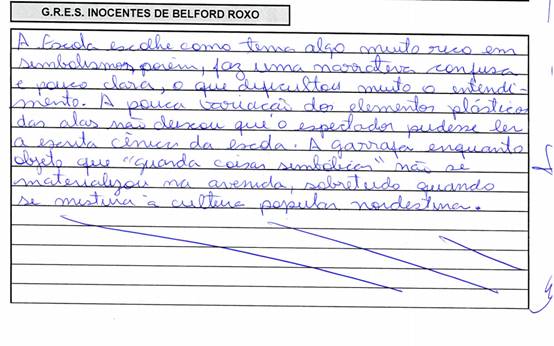 G.R.E.S. INOCENTES DE BELFORD ROXO
A Escola escolhe como tema algo muito rico em
simbolismos, porém, faz uma narrativa confusa
e pouco clara, o que dificultou muito o entendi-
mento. A pouca variação dos elementos plásticos
das alas não deixou que o espectador pudesse ler
a escrita cênica da escola. A garrafa enquanto
objeto que "guarda coisas simbólicas" não se
materializou na avenida, sobretudo quando
se mistura à cultura popular nordestina.